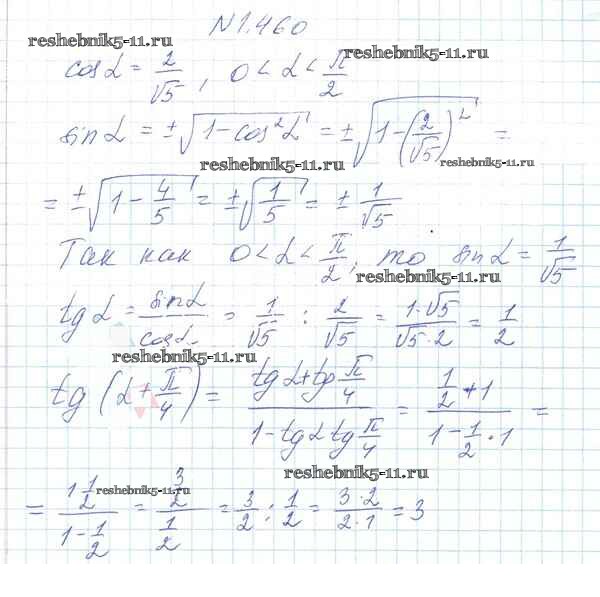 N 1.460
reshebnik5-11.ru
reshebnik5-11.ru
cos α = 2/√5, 0 < α < π/2
sin α = ±√(1 - cos²α) = ±√(1 - (2/√5)²) =
reshebnik5-11.ru
= ±√(1 - 4/5) = ±√(1/5) = ± 1/√5
Так как 0 < α < π/2, то sin α = 1/√5
reshebnik5-11.ru
tg α = sin α/cos α = 1/√5 : 2/√5 = 1·√5/√5·2 = 1/2
reshebnik5-11.ru
tg (α + π/4) = (tg α + tg π/4)/(1 - tg α tg π/4) = (1/2 + 1)/(1 - 1/2 · 1) =
reshebnik5-11.ru
reshebnik5-11.ru
= (1 1/2)/(1 - 1/2) = (3/2)/(1/2) = 3/2 : 1/2 = 3·2/2·1 = 3